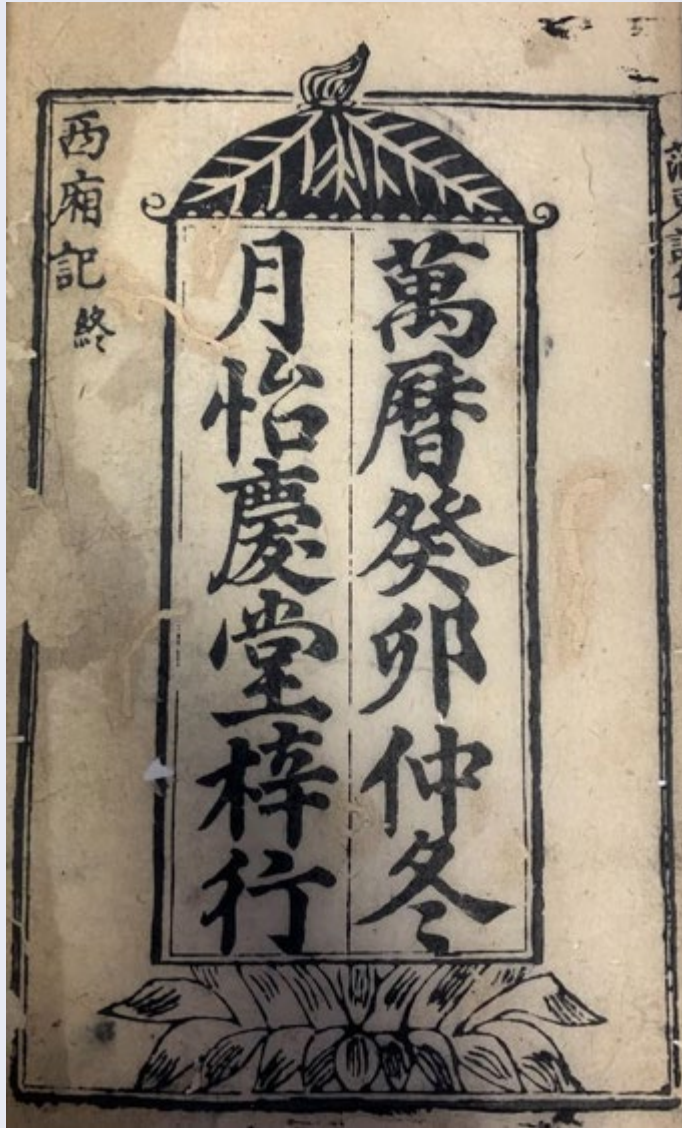 萬曆癸卯仲冬
月怡慶堂梓行
西廂記終